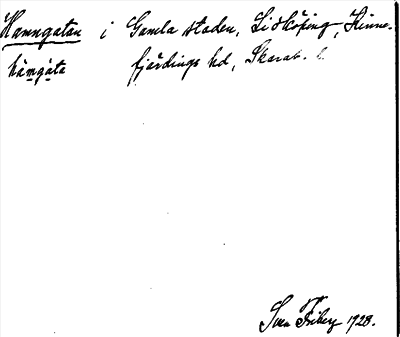 Hamngatan i Gamla staden, Lidköping, Kinne-
hàm̲gàta fjärdings hd, Skarab. l.
Sven Friberg 1928.